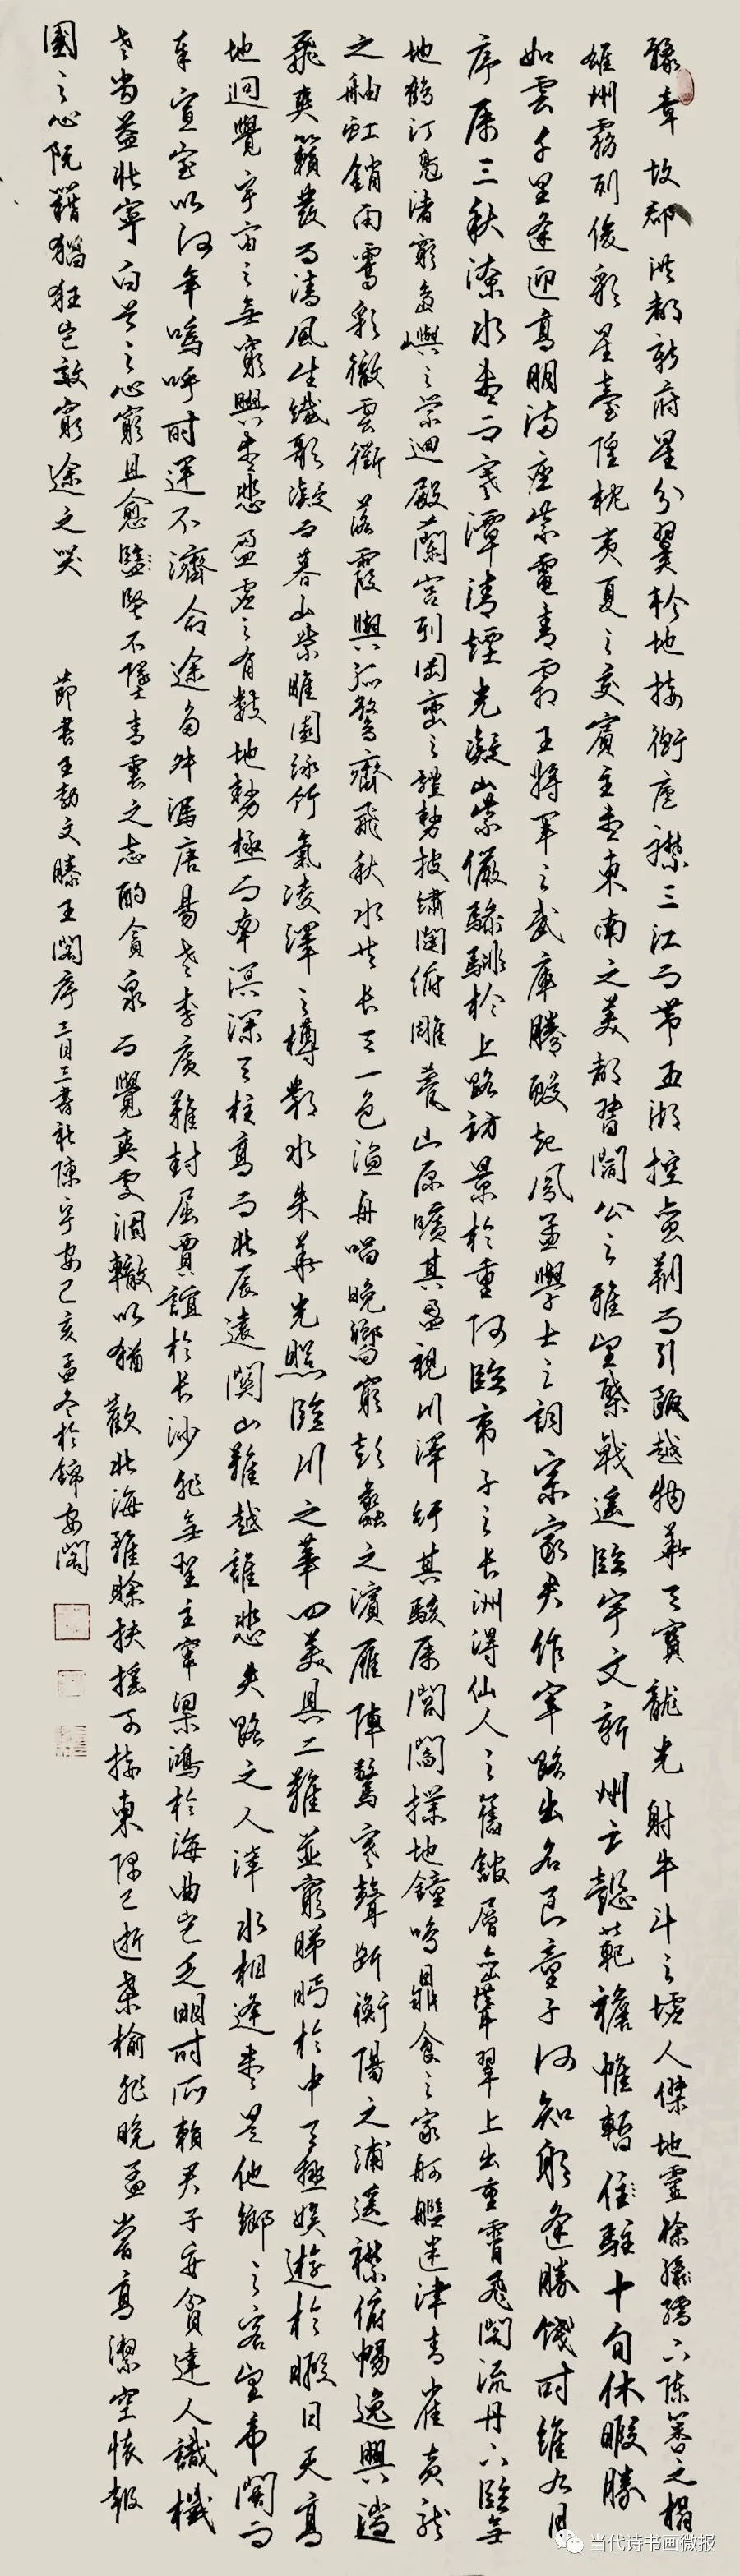 豫章故郡洪都新府星分翼軫地接衡廬襟三江而帶五湖控蠻荊而引甌越物華天寶龍光射牛斗之墟人傑地靈徐孺下陳蕃之榻
雄州霧列俊彩星臺隍枕夷夏之交賓主盡東南之美都督閻公之雅望棨戟遙臨宇文新州之懿範襜帷暫住駐十旬休暇勝
如雲千里逢迎高朋滿座紫電青霜王將軍之武庫騰蛟起鳳孟學士之詞宗家君作宰路出名區童子何知躬逢勝餞時維九月
序屬三秋潦水盡而寒潭清煙光凝山紫儼驂騑於上路訪景於重阿臨帝子之長洲得仙人之舊館層巒聳翠上出重霄飛閣流丹下臨無
地鶴汀鳧渚窮島嶼之縈迴桂殿蘭宮列岡巒之體勢披繡闥俯雕甍山原曠其盈視川澤紆其駭屬閭閻撲地鐘鳴鼎食之家舸艦迷津青雀黃龍
之舳虹銷雨霽彩徹雲衢落霞與孤鶩齊飛秋水共長天一色漁舟唱晚響窮彭蠡之濱雁陣驚寒聲斷衡陽之浦遙襟俯暢逸興遄
飛爽籟發而清風生纖歌凝而暮山紫睢園綠竹氣凌澤之樽鄴水朱華光照臨川之筆四美具二難並窮睇眄於中天極娛遊於暇日天高
地迥覺宇宙之無窮興盡悲盈虛之有數地勢極而南溟深天柱高而北辰遠關山難越誰悲失路之人萍水相逢盡是他鄉之客望帝閽而
奉宣室以何年嗚呼時運不濟命途多舛馮唐易老李廣難封屈賈誼於長沙非無聖主竄梁鴻於海曲豈乏明時所賴君子安貧達人識機
老當益壯寧白首之心窮且愈堅不墜青雲之志酌貪泉而覺爽處涸轍以猶歡北海雖賒扶搖可接東隅已逝桑榆非晚孟嘗高潔空懷報
國之心阮籍猖狂豈效窮途之哭
節書王勃文滕王閣序 三月三書社陳宇安己亥孟冬於錦安閣
当代诗书画微报